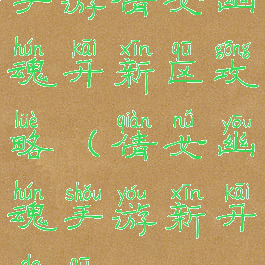 手游倩女幽
hún kāi xīn qū gōng
魂开新区攻
lüè qiàn nǚ yōu
略(倩女幽
hún shǒu yóu xīn kāi
魂手游新开
de qū